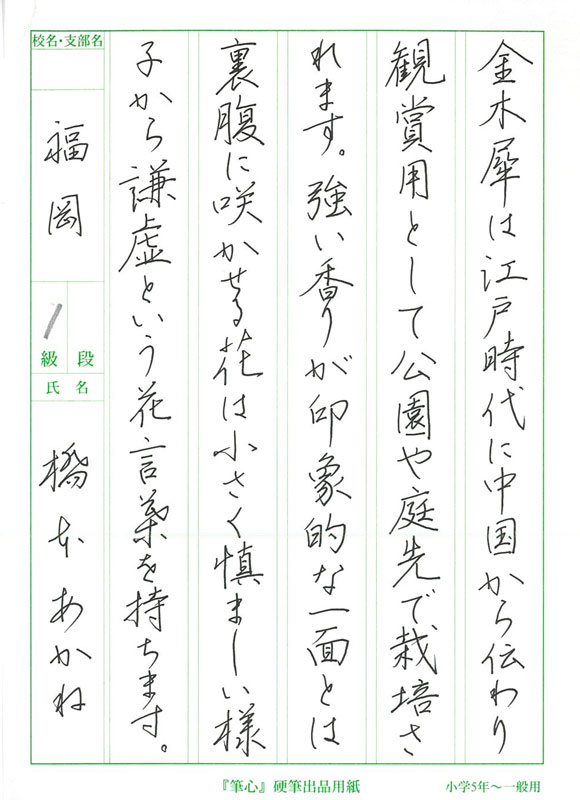 金木犀は江戸時代に中国から伝わり
観賞用として公園や庭先で栽培さ
れます。強い香りが印象的な一面とは
裏腹に咲かせる花は小さく慎ましい様
子から謙虚という花言葉を持ちます。
校名・支部名
福岡
1
級 段
氏 名
橋本あかね
『筆心』硬筆出品用紙
小学5年〜一般用